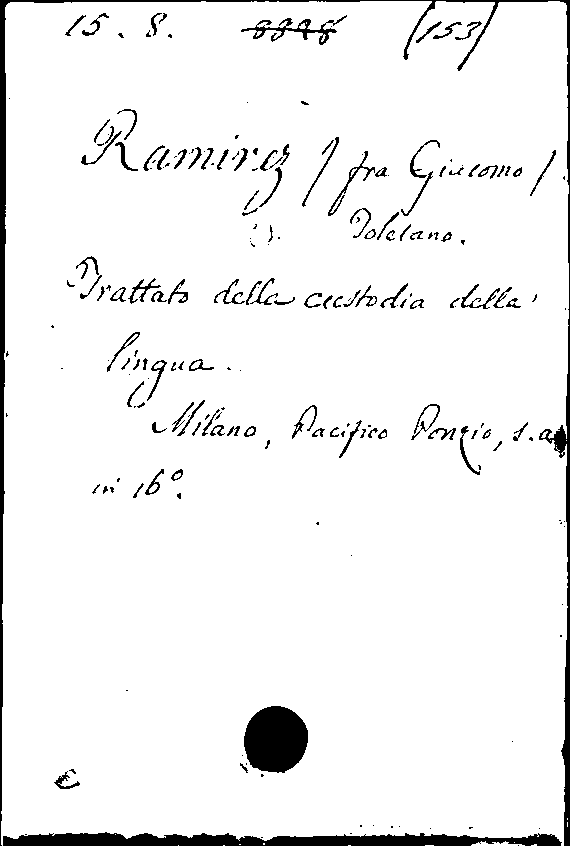 15. 8. (153)
Ramirez / fra Giacomo /
Toletano.
Trattato della custodia della
lingua.
Milano, Pacifico Ponzio, s.a
in 16º.